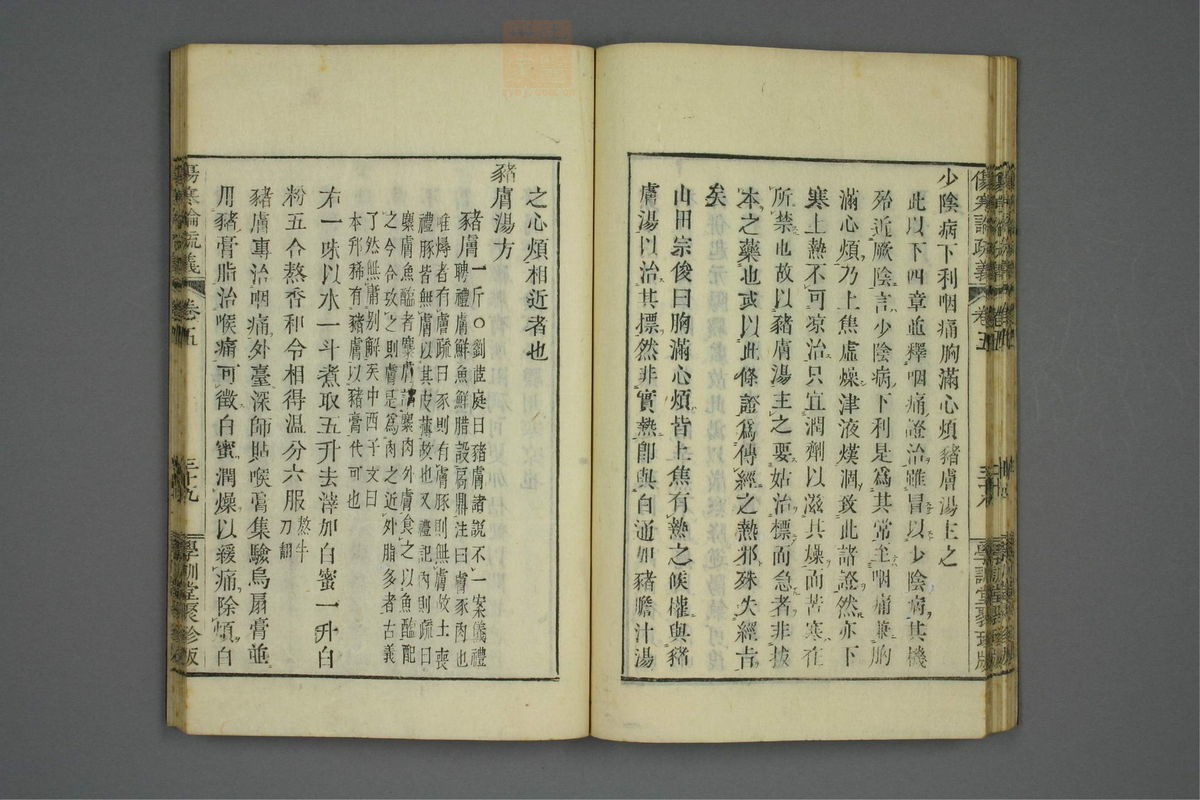 少陰病下利咽痛胸滿心煩豬膚湯主之
此以下四章並釋咽痛證治雖冒以少陰病其機
殆近厥陰言少陰病下利是爲其常至咽痛兼胸
滿心煩乃上焦虛燥津液熯涸致此諸證然亦下
寒上熱不可凉治只宜潤劑以滋其燥而苦寒在
所禁也故以豬膚湯主之要姑治標而急者非拔
本之藥也或以此條證爲傳經之熱邪殊失經旨
矣
山田宗俊曰胸滿心煩皆上焦有熱之候權與豬
膚湯以治其標然非實熱卽與白通加豬膽汁湯
傷寒論疏義
卷五
三十八
學訓堂聚珍版
之心煩相近者也
豬膚湯方
豬膚一斤○劉茝庭曰豬膚諸說不一案儀禮
豬膚聘禮膚鮮魚鮮腊設扃鼎注曰膚豕肉也
唯燖者有膚疏曰豕則有膚豚則無膚故士喪
禮豚皆無膚以其皮薄故也又禮記內則疏曰
麋膚魚醢者麋膚謂麋肉外膚食之以魚醢配
之今合攷之則膚是爲肉之近外脂多者古義
了然無庸別解矣中西子文曰
本邦稀有豬膚以豬膏代可也
右一味以水一斗煮取五升去滓加白蜜一升白
粉五合熬香和令相得溫分六服
豬膚專治咽痛外臺深師貼喉膏集驗烏扇膏並
用豬膏脂治喉痛可徵白蜜潤燥以緩痛除煩白
傷寒論疏義
卷五
三十九
學訓堂聚珍版